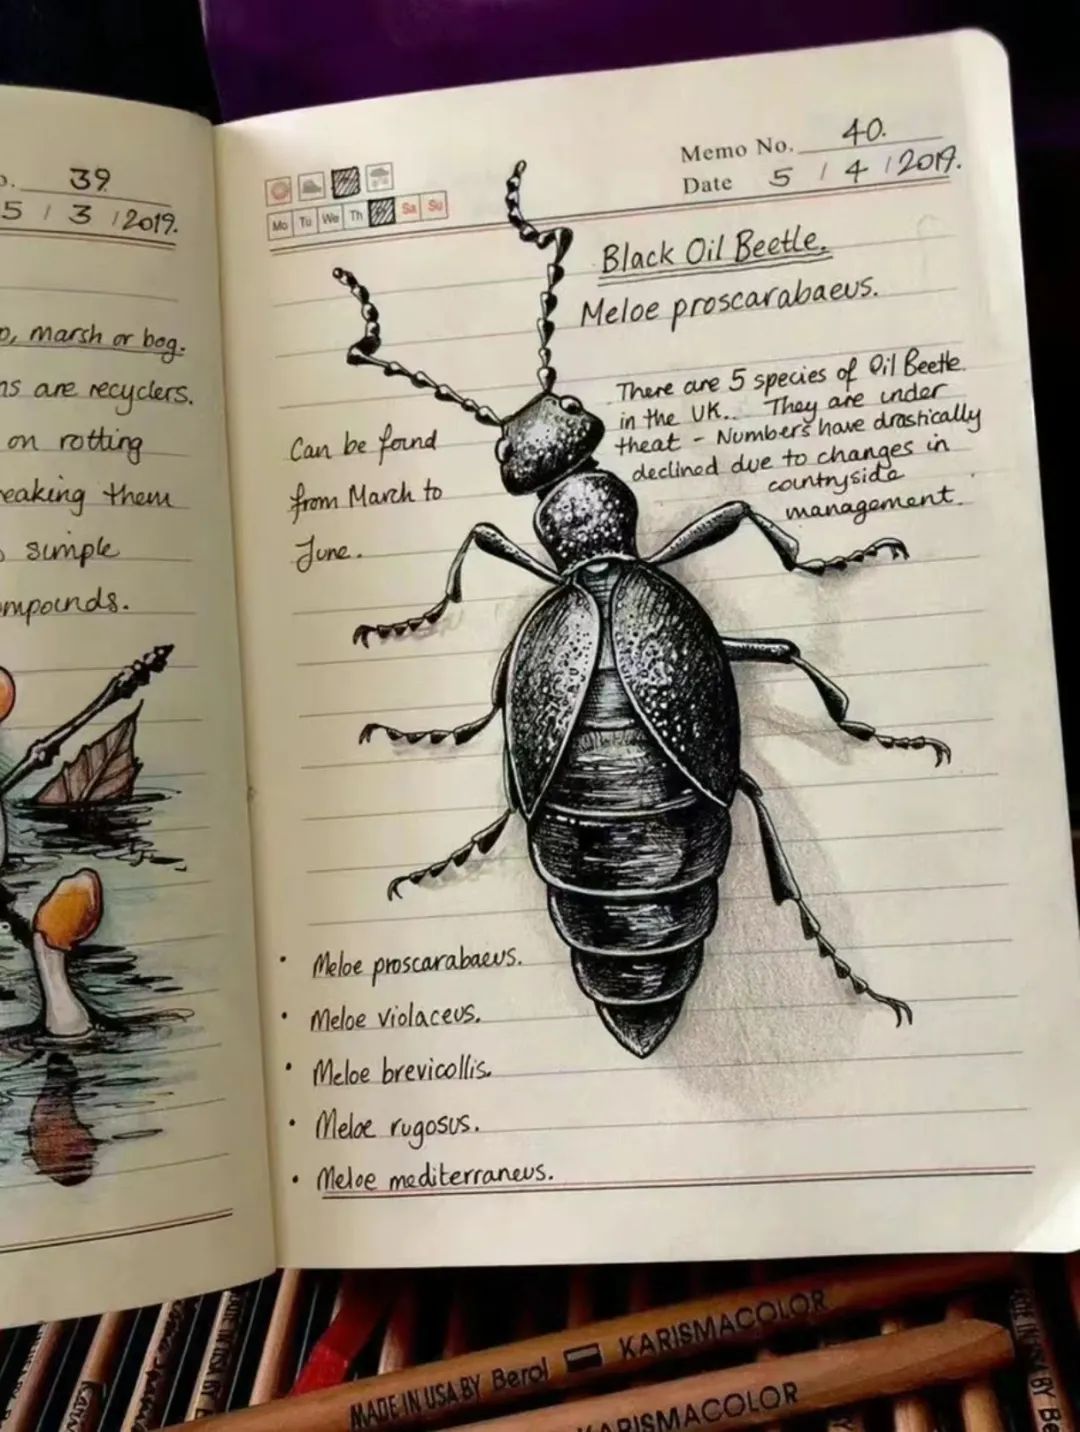 39
5 / 3 / 2019.
marsh or bog.
are recyclers.
on rotting
them
simple
Memo No. 40.
Date 5 / 4 / 2019.
Mo Tu We Th Sa Su
Black Oil Beetle.
Meloe proscarabaeus.
There are 5 species of Oil Beetle
in the UK.. They are under
theat - Numbers have drastically
declined due to changes in
countryside
management.
Can be found
from March to
June.
• Meloe proscarabaeus.
• Meloe violaceus.
• Meloe brevicollis.
• Meloe rugosus.
• Meloe mediterraneus.
MADE IN USA BY Berol KARISMACOLOR
KARISMACOLOR